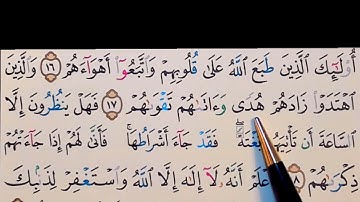 أُو۟لَـٰٓئِكَ ٱلَّذِينَ طَبَعَ ٱللَّهُ عَلَىٰ قُلُوبِهِمْ وَٱتَّبَعُوٓا۟ أَهْوَآءَهُمْ ١٦ وَٱلَّذِينَ
ٱهْتَدَوْا۟ زَادَهُمْ هُدًى وَءَاتَىٰهُمْ تَقْوَىٰهُمْ ١٧ فَهَلْ يَنظُرُونَ إِلَّا
ٱلسَّاعَةَ أَن تَأْتِيَهُم بَغْتَةً فَقَدْ جَآءَ أَشْرَاطُهَا فَأَنَّىٰ لَهُمْ إِذَا جَآءَتْهُمْ
ذِكْرَىٰهُمْ ١٨ فَٱعْلَمْ أَنَّهُۥ لَآ إِلَـٰهَ إِلَّا ٱللَّهُ وَٱسْتَغْفِرْ لِذَنۢبِكَ